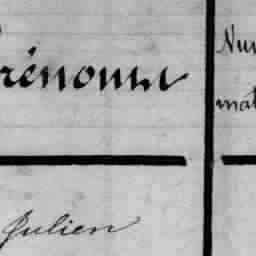 rénoms
Nu
mat
Julien